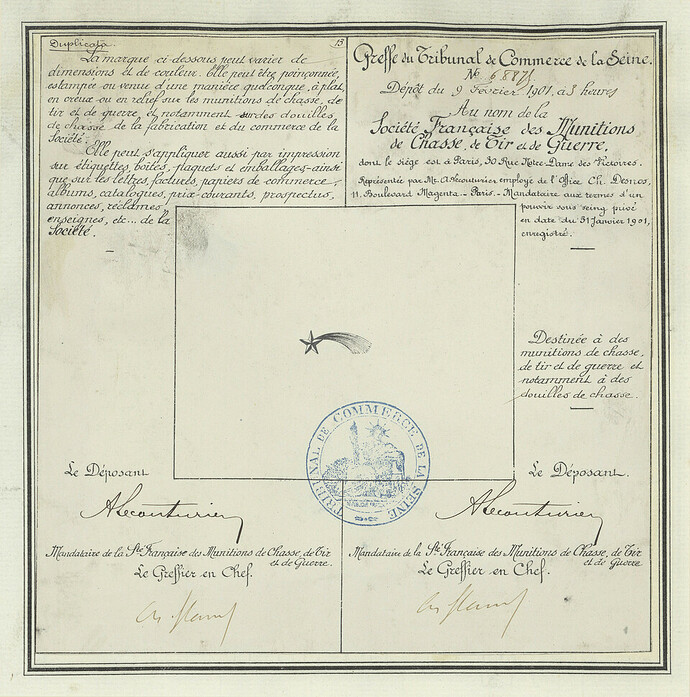 Duplicata. 13
La marque ci-dessous peut varier de
dimensions et de couleur. Elle peut être poinçonnée,
estampée ou venue d'une manière quelconque, à plat,
en creux ou en relief sur les munitions de chasse, de
tir et de guerre, et notamment sur des douilles
de chasse de la fabrication et du commerce de la
Société.
Elle peut s'appliquer aussi par impression
sur étiquettes, boîtes, plaquets et emballages ainsi
que sur les lettres, factures, papiers de commerce,
albums, catalogues, prix-courants, prospectus,
annonces, réclames,
enseignes, etc... de la
Société.
Greffe du Tribunal de Commerce de la Seine.
No 68871
Dépôt du 9 Février 1901 à 3 heures
Au nom de la
Société Française des Munitions
de Chasse, de Tir et de Guerre,
dont le siège est à Paris, 30 Rue Notre-Dame des Victoires.
Représentée par Mr. A. Lecouturier, employé de l'Office Ch. Desnos,
11, Boulevard Magenta - Paris. - Mandataire aux termes d'un
pouvoir sous seing privé
en date du 31 Janvier 1901,
enregistré.
Destinée à des
munitions de chasse,
de tir et de guerre et
notamment à des
douilles de chasse.
TRIBUNAL DE COMMERCE DE LA SEINE
Le Déposant
ALecouturier
Mandataire de la Sté Française des Munitions de Chasse, de Tir
et de Guerre.
Le Greffier en Chef.
Le Déposant.
ALecouturier
Mandataire de la Sté Française des Munitions de Chasse, de Tir
et de Guerre
Le Greffier en Chef.